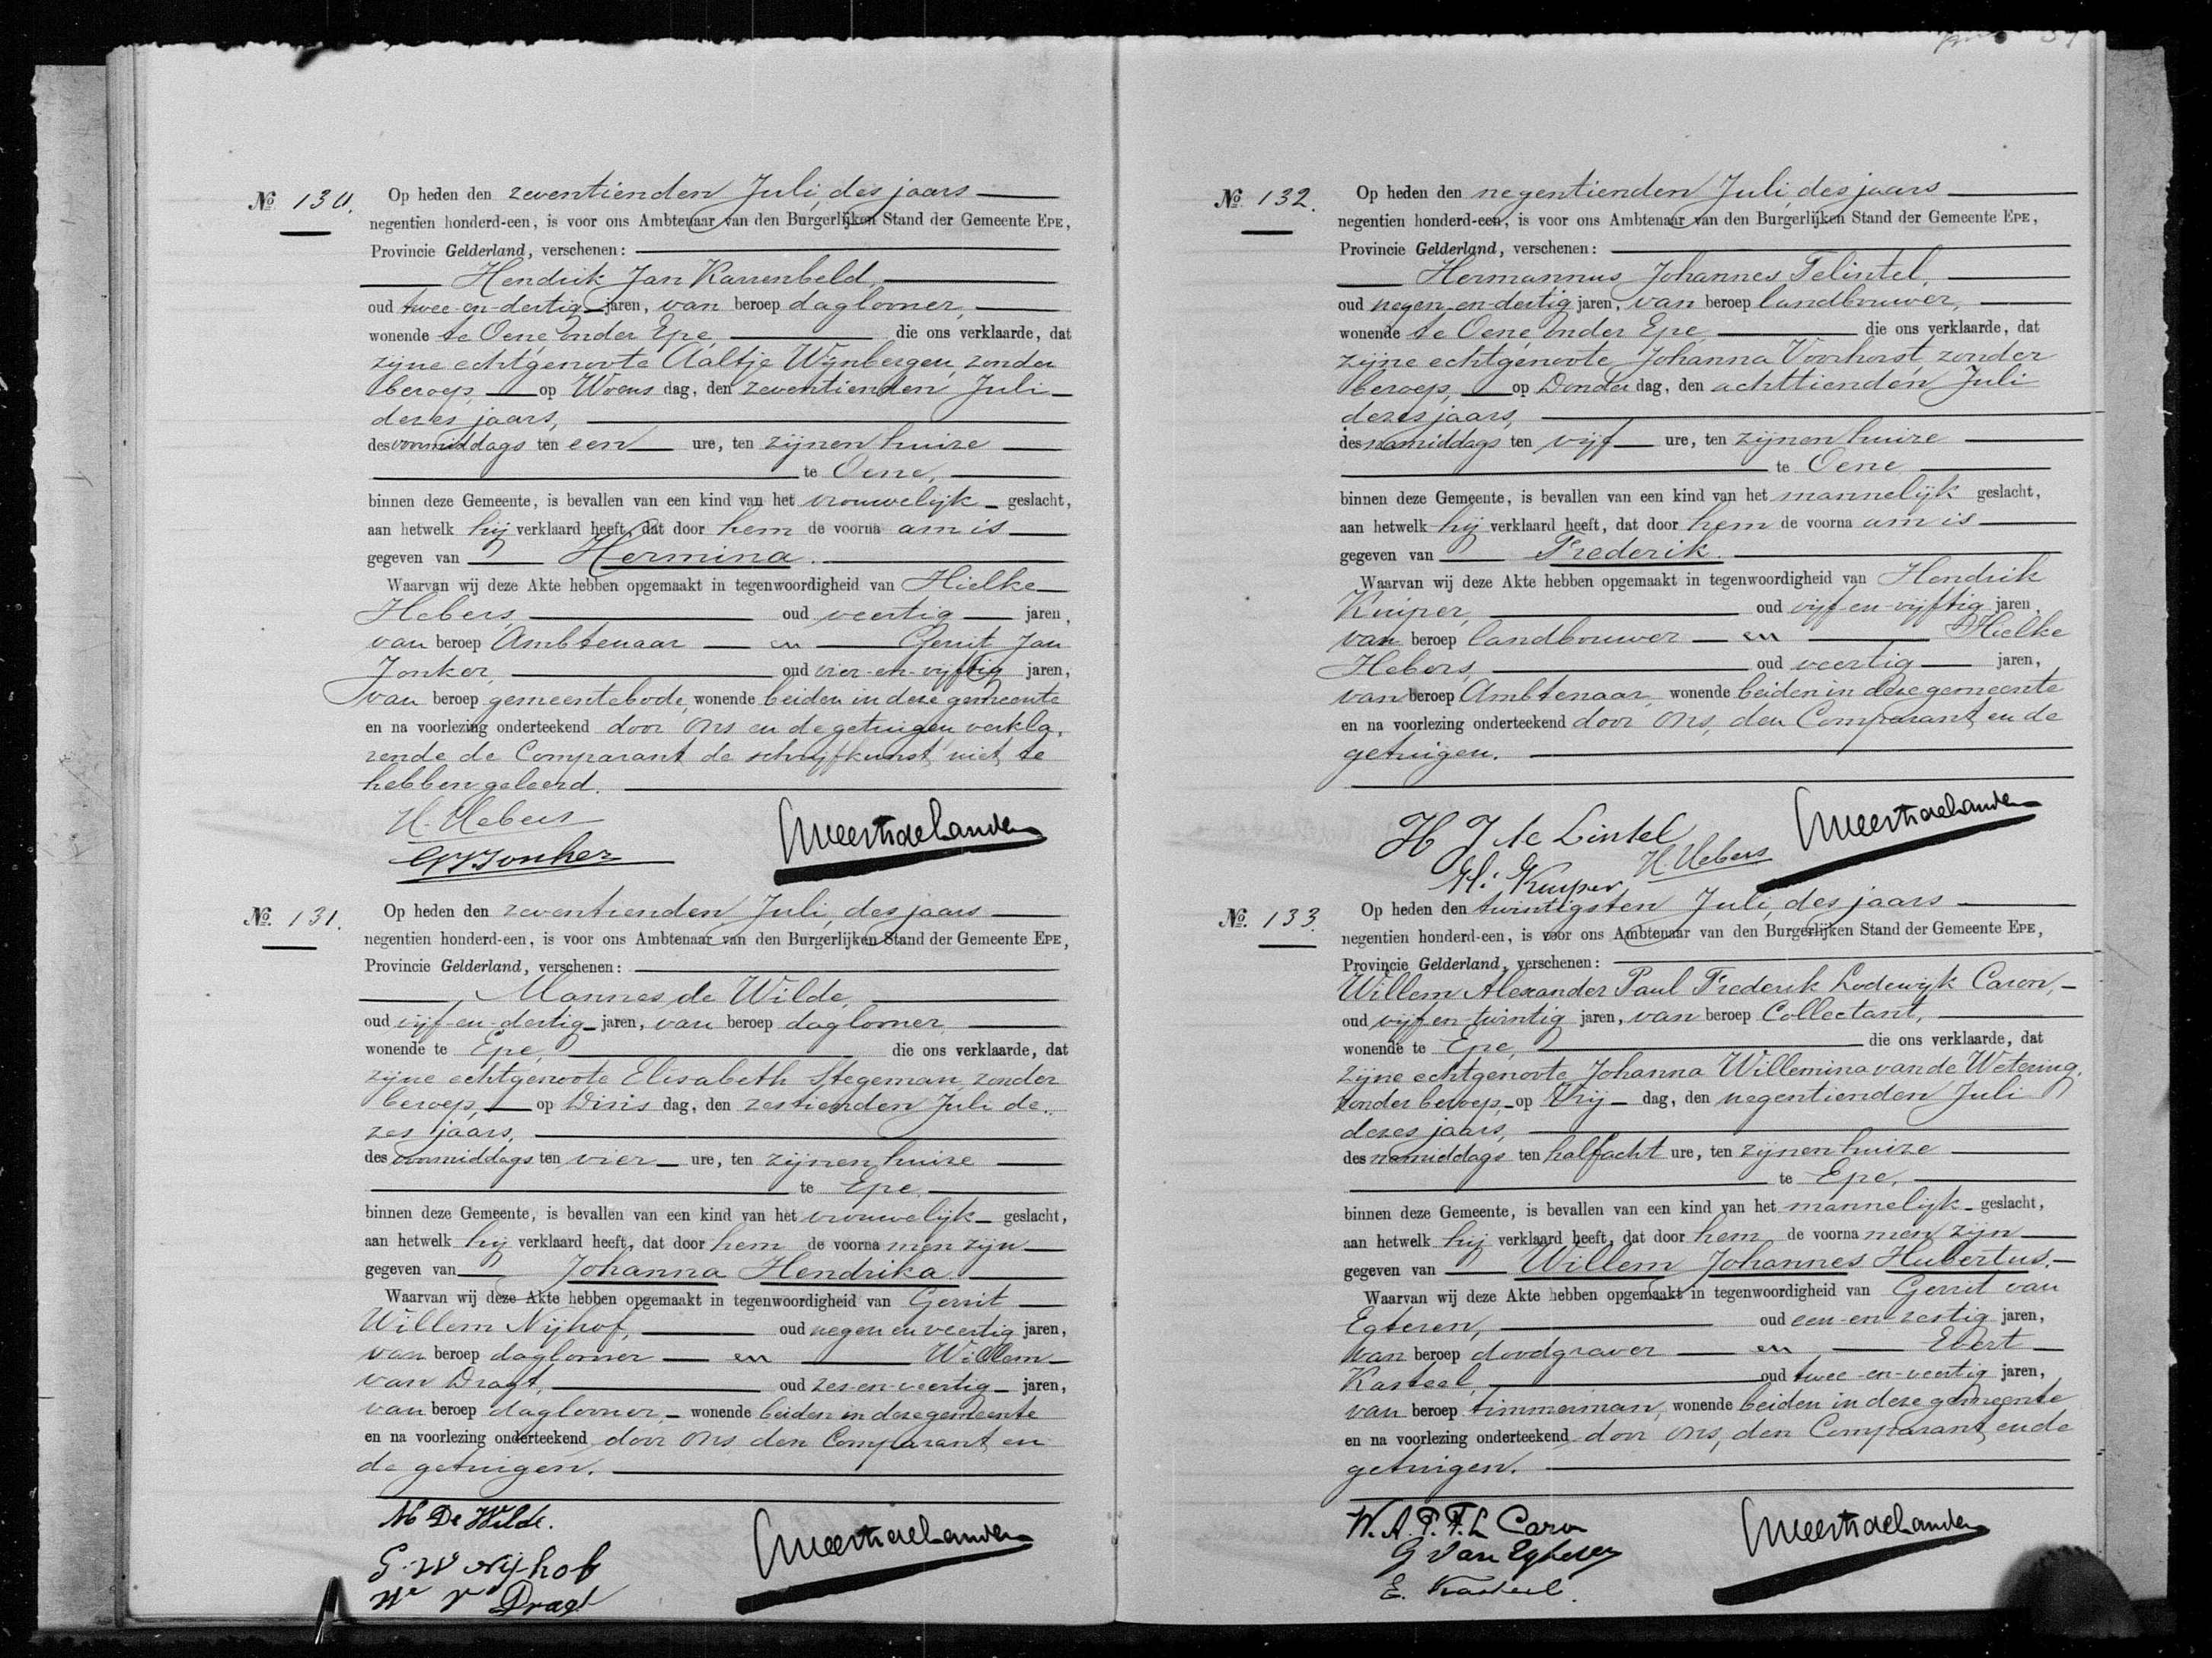 № 130.
Op heden den zeventienden Juli, des jaars
negentien honderd-een, is voor ons Ambtenaar van den Burgerlijken Stand der Gemeente EPE,
Provincie Gelderland, verschenen:
Hendrik Jan Karrenbeld,
oud twee-en-dertig jaren, van beroep daglooner,
wonende te Oene, onder Epe, die ons verklaarde, dat
zijne echtgenoote Aaltje Wijnbergen, zonder
beroep, op Woens dag, den zeventienden Juli
dezes jaars,
des voormiddags ten een ure, ten zijnen huize
te Oene,
binnen deze Gemeente, is bevallen van een kind van het vrouwelijk geslacht,
aan hetwelk hij verklaard heeft, dat door hem de voorna am is
gegeven van Hermina.
Waarvan wij deze Akte hebben opgemaakt in tegenwoordigheid van Hielke
Hebers, oud veertig jaren,
van beroep Ambtenaar en Gerrit Jan
Jonker, oud vier-en-vijftig jaren,
van beroep gemeentebode, wonende beiden in deze gemeente
en na voorlezing onderteekend door ons en de getuigen, verkla,
rende de Comparant de schrijfkunst niet te
hebben geleerd.
H. Hebers
GJ Jonker
№ 131.
Op heden den zeventienden Juli, des jaars
negentien honderd-een, is voor ons Ambtenaar van den Burgerlijken Stand der Gemeente EPE,
Provincie Gelderland, verschenen:
Mannes de Wilde,
oud vijf-en-dertig jaren, van beroep daglooner,
wonende te Epe, die ons verklaarde, dat
zijne echtgenoote Elisabeth Stegeman, zonder
beroep, op Dins dag, den zestienden Juli de,
zes jaars,
des voormiddags ten vier ure, ten zijnen huize
te Epe,
binnen deze Gemeente, is bevallen van een kind van het vrouwelijk geslacht,
aan hetwelk hij verklaard heeft, dat door hem de voorna men zijn
gegeven van Johanna Hendrika.
Waarvan wij deze Akte hebben opgemaakt in tegenwoordigheid van Gerrit
Willem Nijhof, oud negen en veertig jaren,
van beroep daglooner en Willem
van Dragt, oud zes-en-veertig jaren,
van beroep daglooner, wonende beiden in deze gemeente
en na voorlezing onderteekend door ons, den Comparant en
de getuigen.
M De Wilde.
G. W Nijhof
Wm v Dragt
№ 132.
Op heden den negentienden Juli, des jaars
negentien honderd-een, is voor ons Ambtenaar van den Burgerlijken Stand der Gemeente EPE,
Provincie Gelderland, verschenen:
Hermannus Johannes Telintel,
oud negen-en-dertig jaren, van beroep landbouwer,
wonende te Oene, onder Epe, die ons verklaarde, dat
zijne echtgenoote Johanna Voorhorst, zonder
beroep, op Donder dag, den achttienden Juli
dezes jaars,
des namiddags ten vijf ure, ten zijnen huize
te Oene
binnen deze Gemeente, is bevallen van een kind van het mannelijk geslacht,
aan hetwelk hij verklaard heeft, dat door hem de voorna am is
gegeven van Frederik.
Waarvan wij deze Akte hebben opgemaakt in tegenwoordigheid van Hendrik
Kuiper, oud vijf-en-vijftig jaren,
van beroep landbouwer en Hielke
Hebers, oud veertig jaren,
van beroep Ambtenaar, wonende beiden in deze gemeente
en na voorlezing onderteekend door ons, den Comparant en de
getuigen.
H J te Lintel
H. Hebers
H: Kuiper
№ 133.
Op heden den twintigsten Juli, des jaars
negentien honderd-een, is voor ons Ambtenaar van den Burgerlijken Stand der Gemeente EPE,
Provincie Gelderland, verschenen:
Willem Alexander Paul Frederik Lodewijk Caron,
oud vijf en twintig jaren, van beroep Collectant,
wonende te Epe, die ons verklaarde, dat
zijne echtgenoote Johanna Willemina van de Wetering,
zonder beroep, op Vrij dag, den negentienden Juli
dezes jaars,
des namiddags ten half acht ure, ten zijnen huize
te Epe,
binnen deze Gemeente, is bevallen van een kind van het mannelijk geslacht,
aan hetwelk hij verklaard heeft, dat door hem de voorna men zijn
gegeven van Willem Johannes Hubertus.
Waarvan wij deze Akte hebben opgemaakt in tegenwoordigheid van Gerrit van
Egteren, oud een-en-zestig jaren,
van beroep doodgraver en Evert
Kasteel, oud twee-en-veertig jaren,
van beroep timmerman, wonende beiden in deze gemeente
en na voorlezing onderteekend door ons, den Comparant en de
getuigen.
W. A. P. F. L Caron
G van Egteren
E. Kasteel.